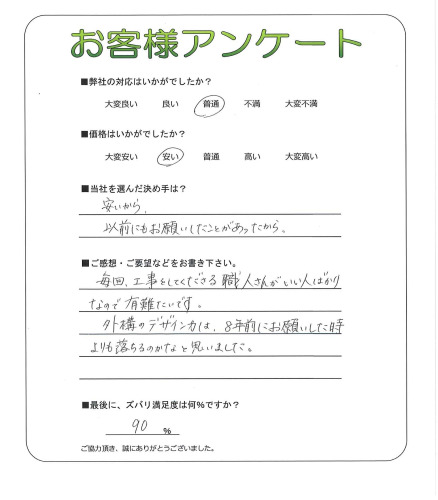 お客様アンケート
■弊社の対応はいかがでしたか？
大変良い　良い　普通　不満　大変不満
■価格はいかがでしたか？
大変安い　安い　普通　高い　大変高い
■当社を選んだ決め手は？
安いから、
以前にもお願いしたことがあったから。
■ご感想・ご要望などをお書き下さい。
毎回、工事をしてくださる職人さんがいい人ばかり
なので有難たいです。
外構のデザイン力は、8年前にお願いした時
よりも落ちるのかなと思いました。
■最後に、ズバリ満足度は何%ですか？
90 %
ご協力頂き、誠にありがとうございました。